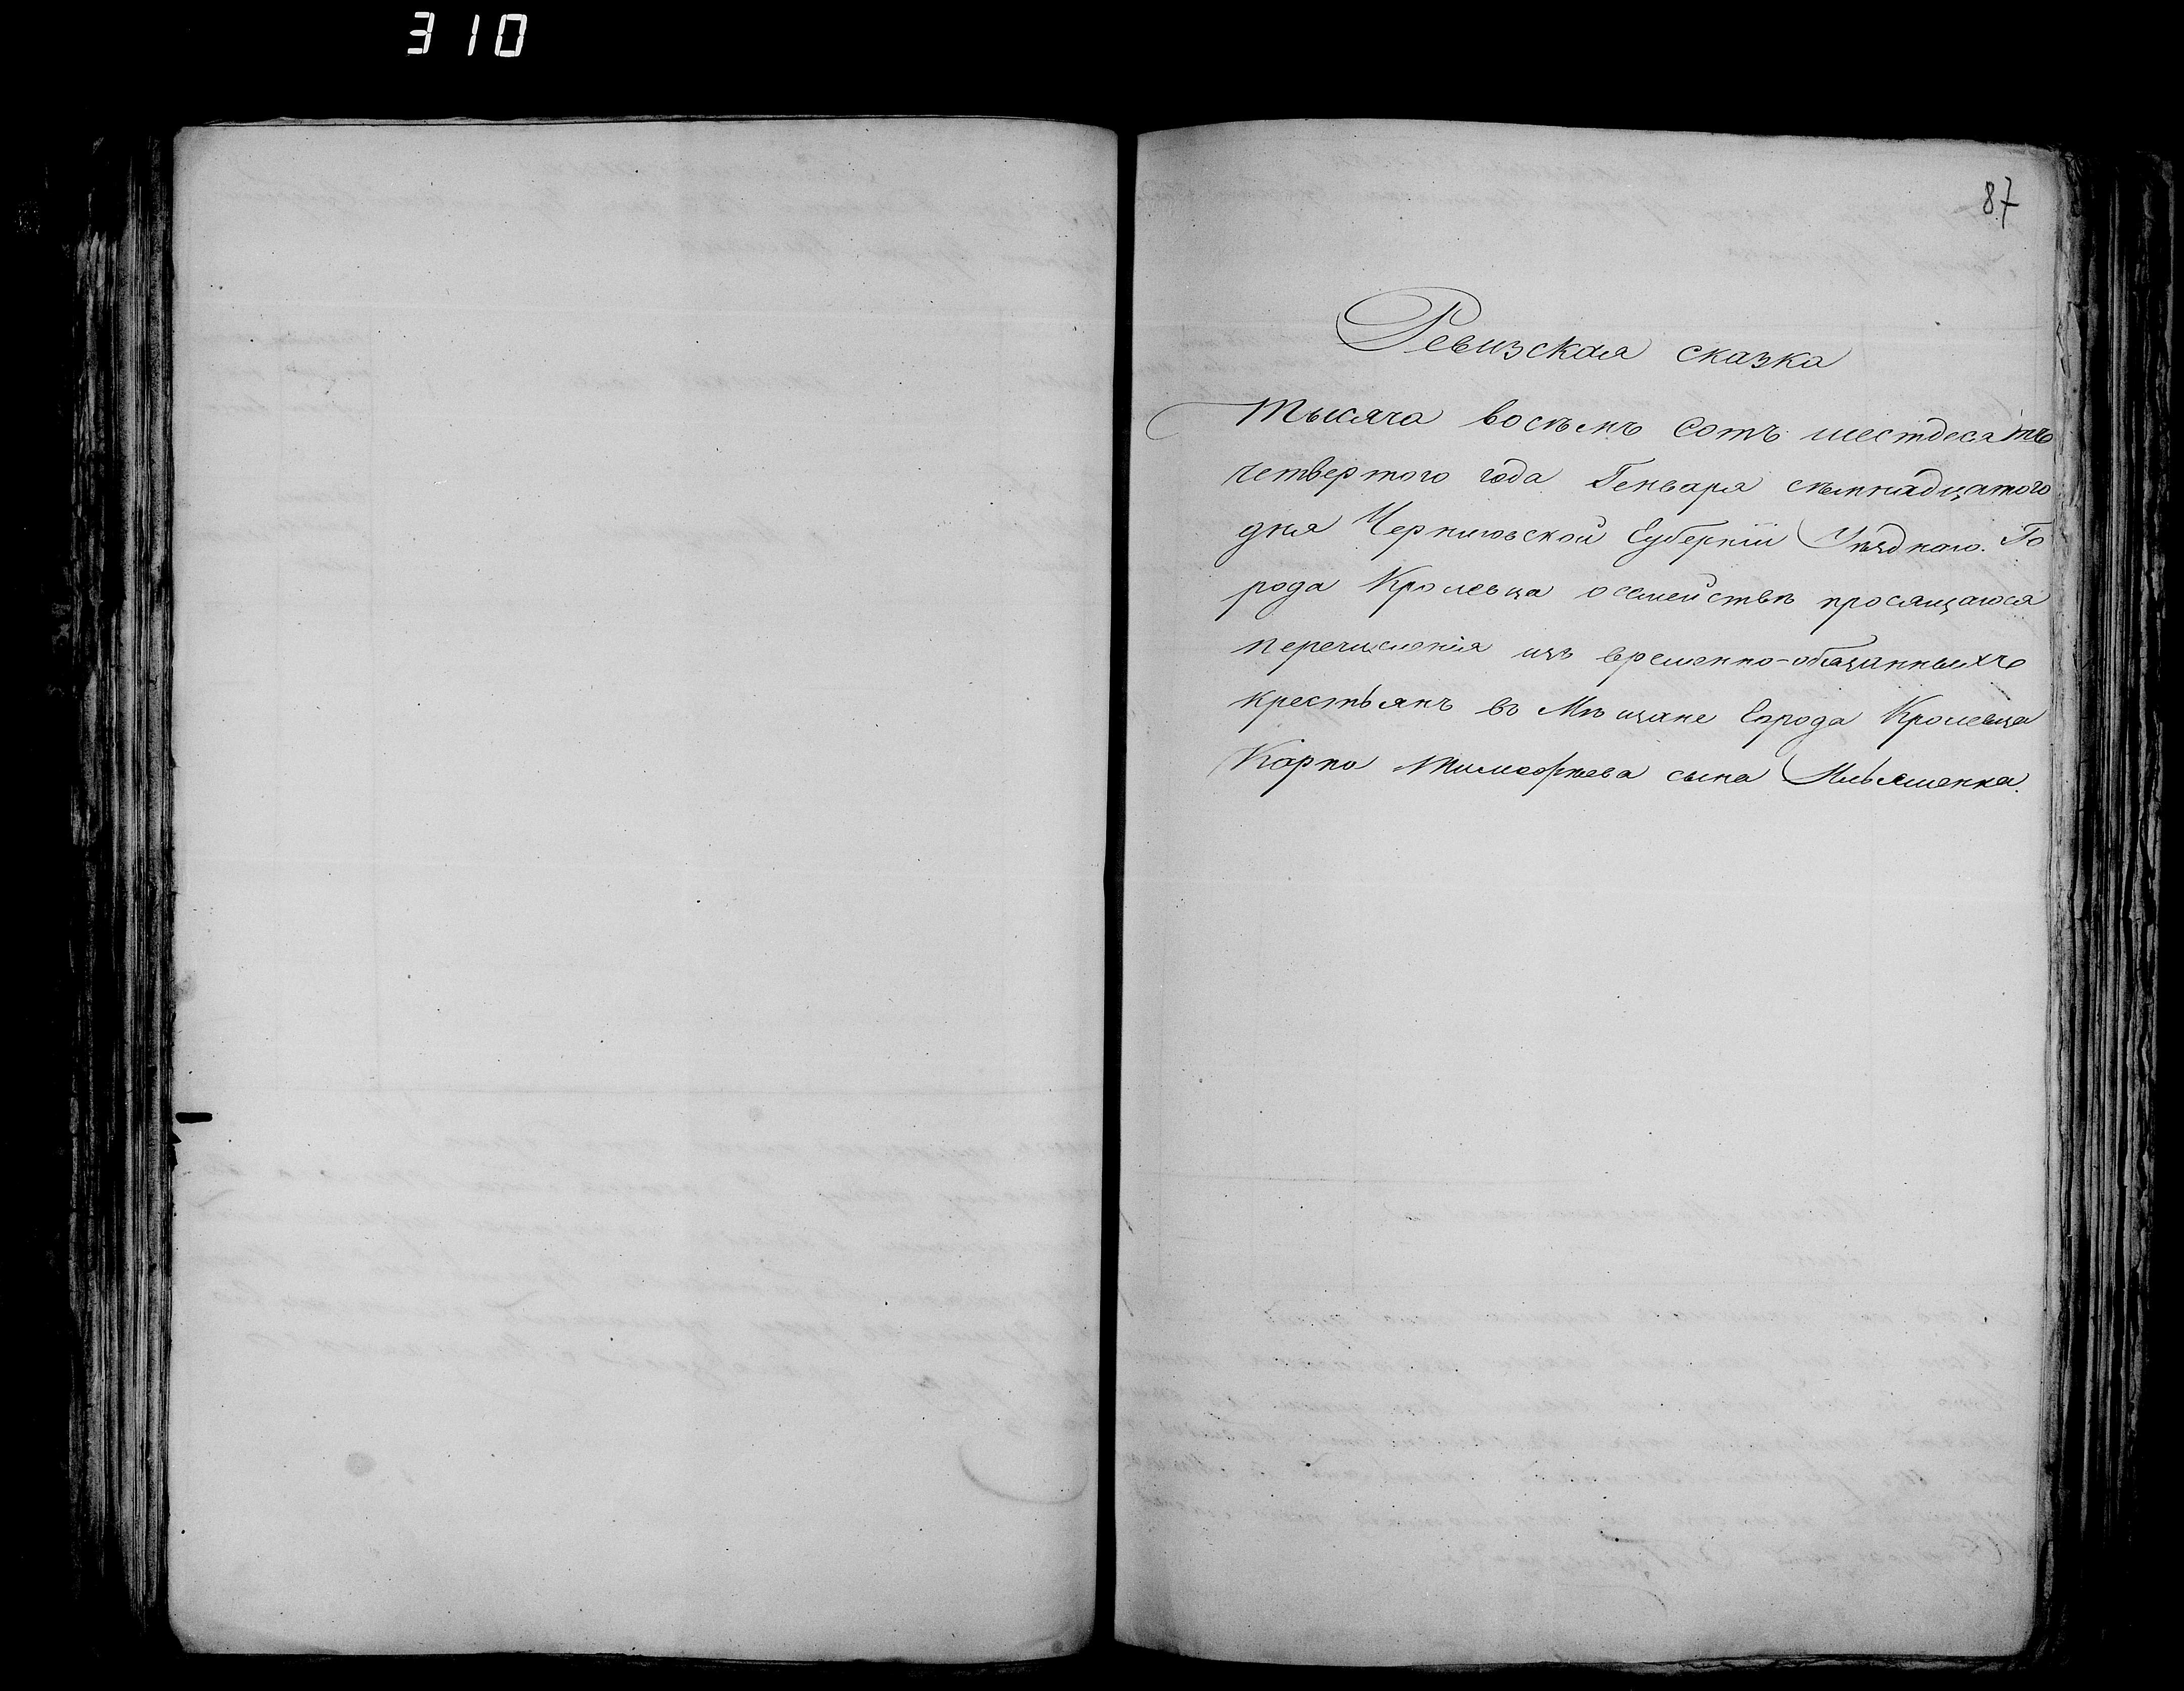 310
87
Ревизская сказка
Тысяча восѣмъ Сотъ шестдесятъ
четвертого года Генваря сѣмнадцатого
дня Черниговской Губерніи Уѣзднаго Го
рода Кролевца о семействѣ просящагося
перечисленія изъ временно-обязанныхъ
крестьянъ въ Мѣщане Города Кролевца
Карпа Тимофѣева сына Ильяшенка.